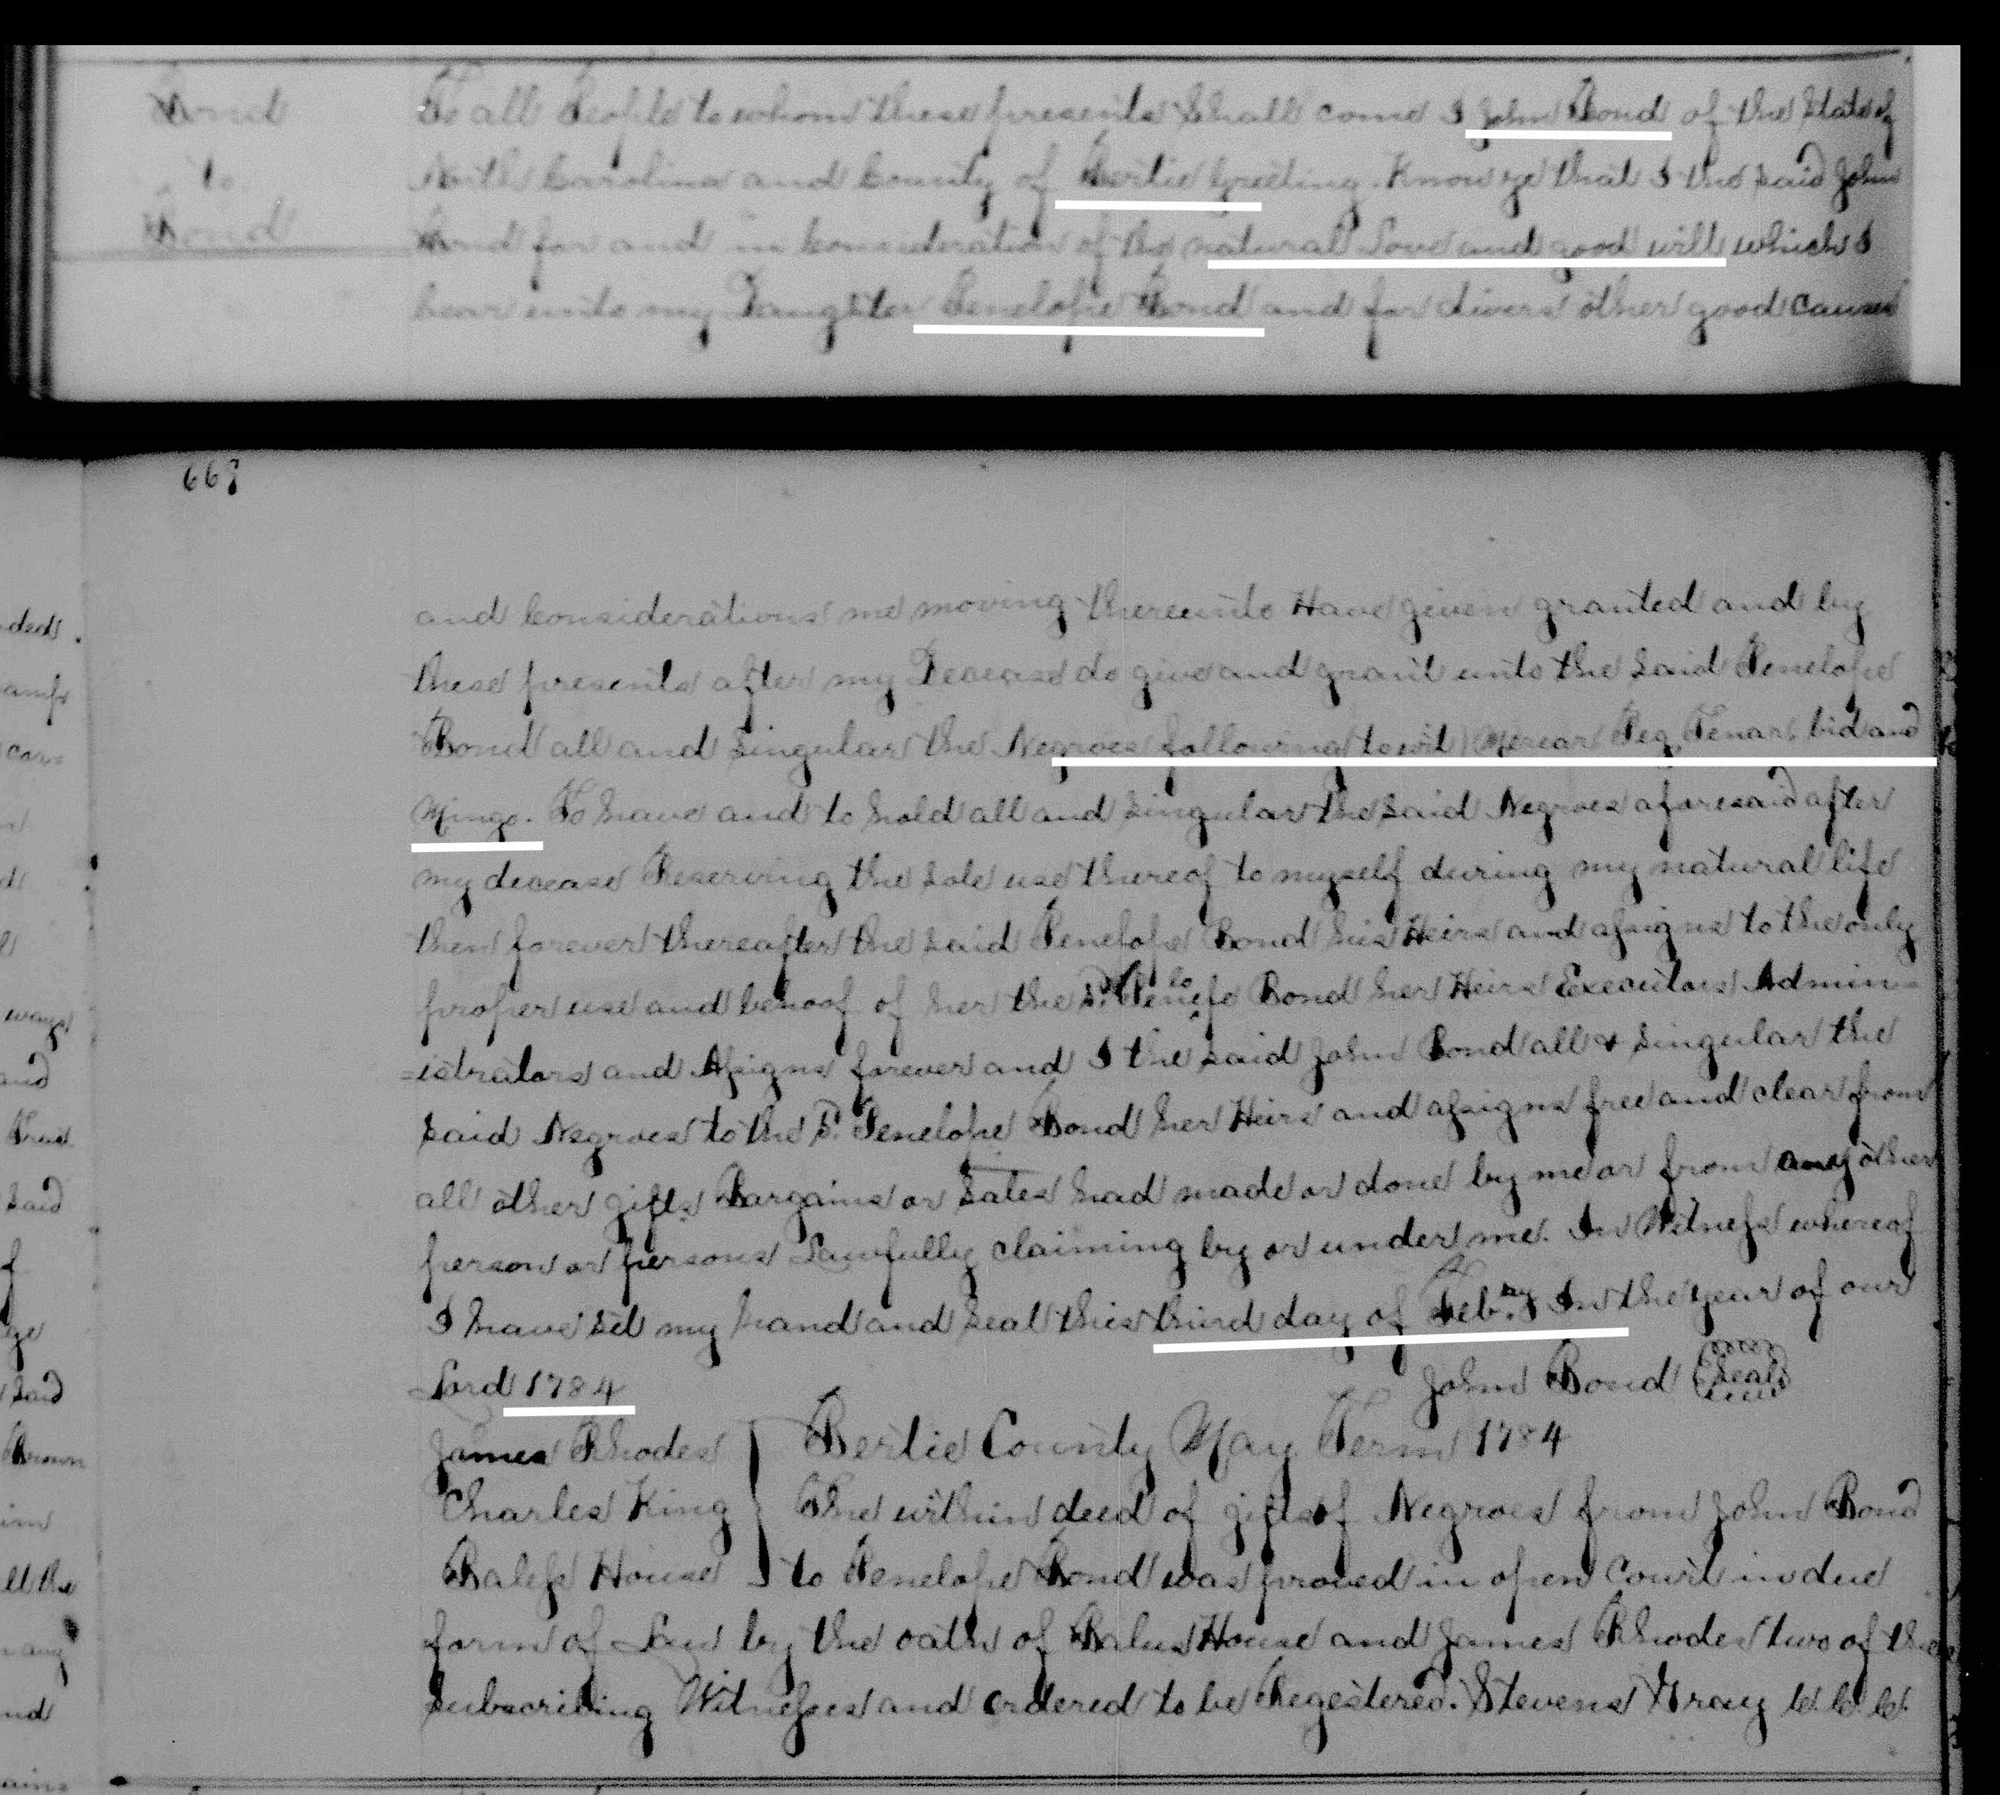 Bond
to
Bond
To all People to whom these presents Shall come I John Bond of the State of
North Carolina and County of Bertie Greeting Know ye that I the said John
Bond for and in Consideration of the natural Love and good will which I
bear unto my Daughter Penelope Bond and for divers other good causes
663
and Considerations me moving thereunto Have given granted and by
these presents after my Decease do give and grant unto the Said Penelope
Bond all and Singular the Negroes following towit Peg, Tenar, and
Mingo. To have and to hold all and Singular the Said Negroes aforesaid after
my decease Reserving the sole use thereof to myself during my natural life
then forever thereafter the said Penelope Bond his Heirs and assigns to the only
proper use and behoof of her the Sd. Penelope Bond her Heirs Executors Admin-
=istrators and Assigns forever and I the said John Bond all & Singular the
said Negroes to the Sd. Penelope Bond her Heirs and assigns free and clear from
all other gifts Bargains or Sales had made or done by me or from any other
person or persons Lawfully claiming by or under me. In Witness whereof
I have set my hand and Seal this third day of Feb.ry In the year of our
Lord 1784 John Bond Seal
James Rhodes Bertie County May Term 1784
Charles King The within deed of gift of Negroes from John Bond
Baless House to Penelope Bond was proved in open Court in due
form of Law by the oath of Balus House and James Rhodes two of the
subscribing Witnesses and ordered to be Regestered. Stevens Gray C.C.C.